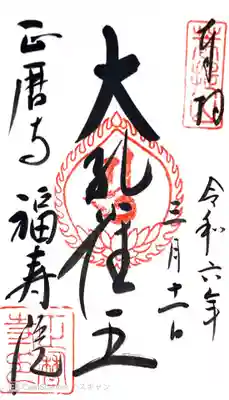 奉拝
令和六年
三月十一日
大孔雀王
正暦寺 福寿院
CamScanner でスキャン